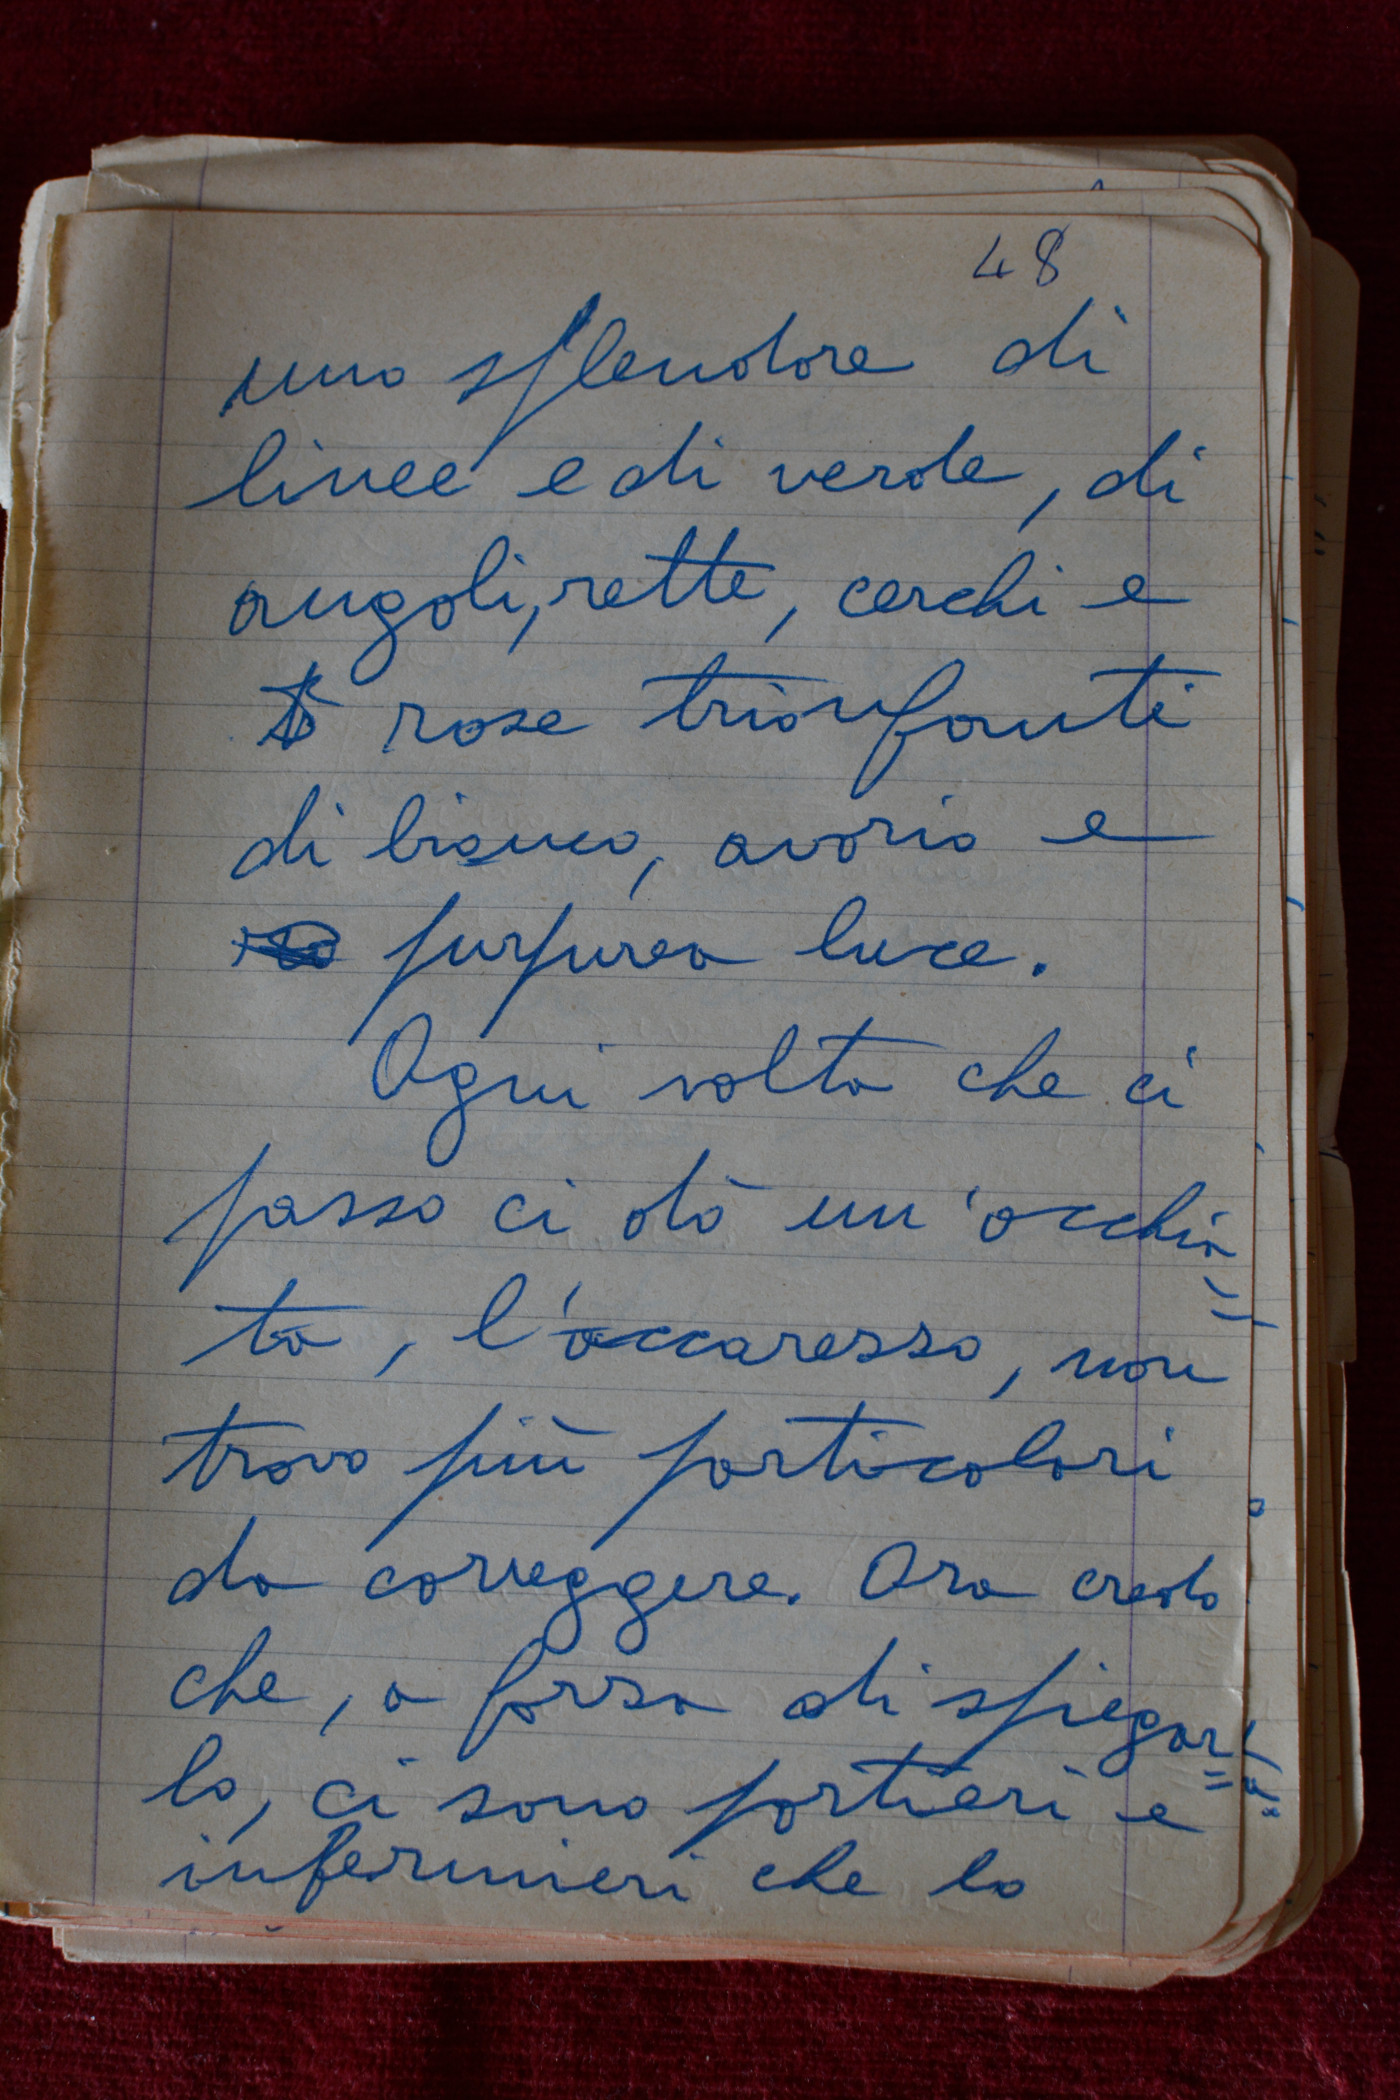 48
uno splendore di
linee e di verde, di
angoli, rette, cerchi e
rose trionfanti
di bianco, avorio e
purpurea luce.
Ogni volta che ci
passo ci dò un'occhia
=
ta, l'accarezzo, non
trovo più particolari
da correggere. Ora credo
che, a forza di spiegar=
lo, ci sono portieri e
infermieri che lo